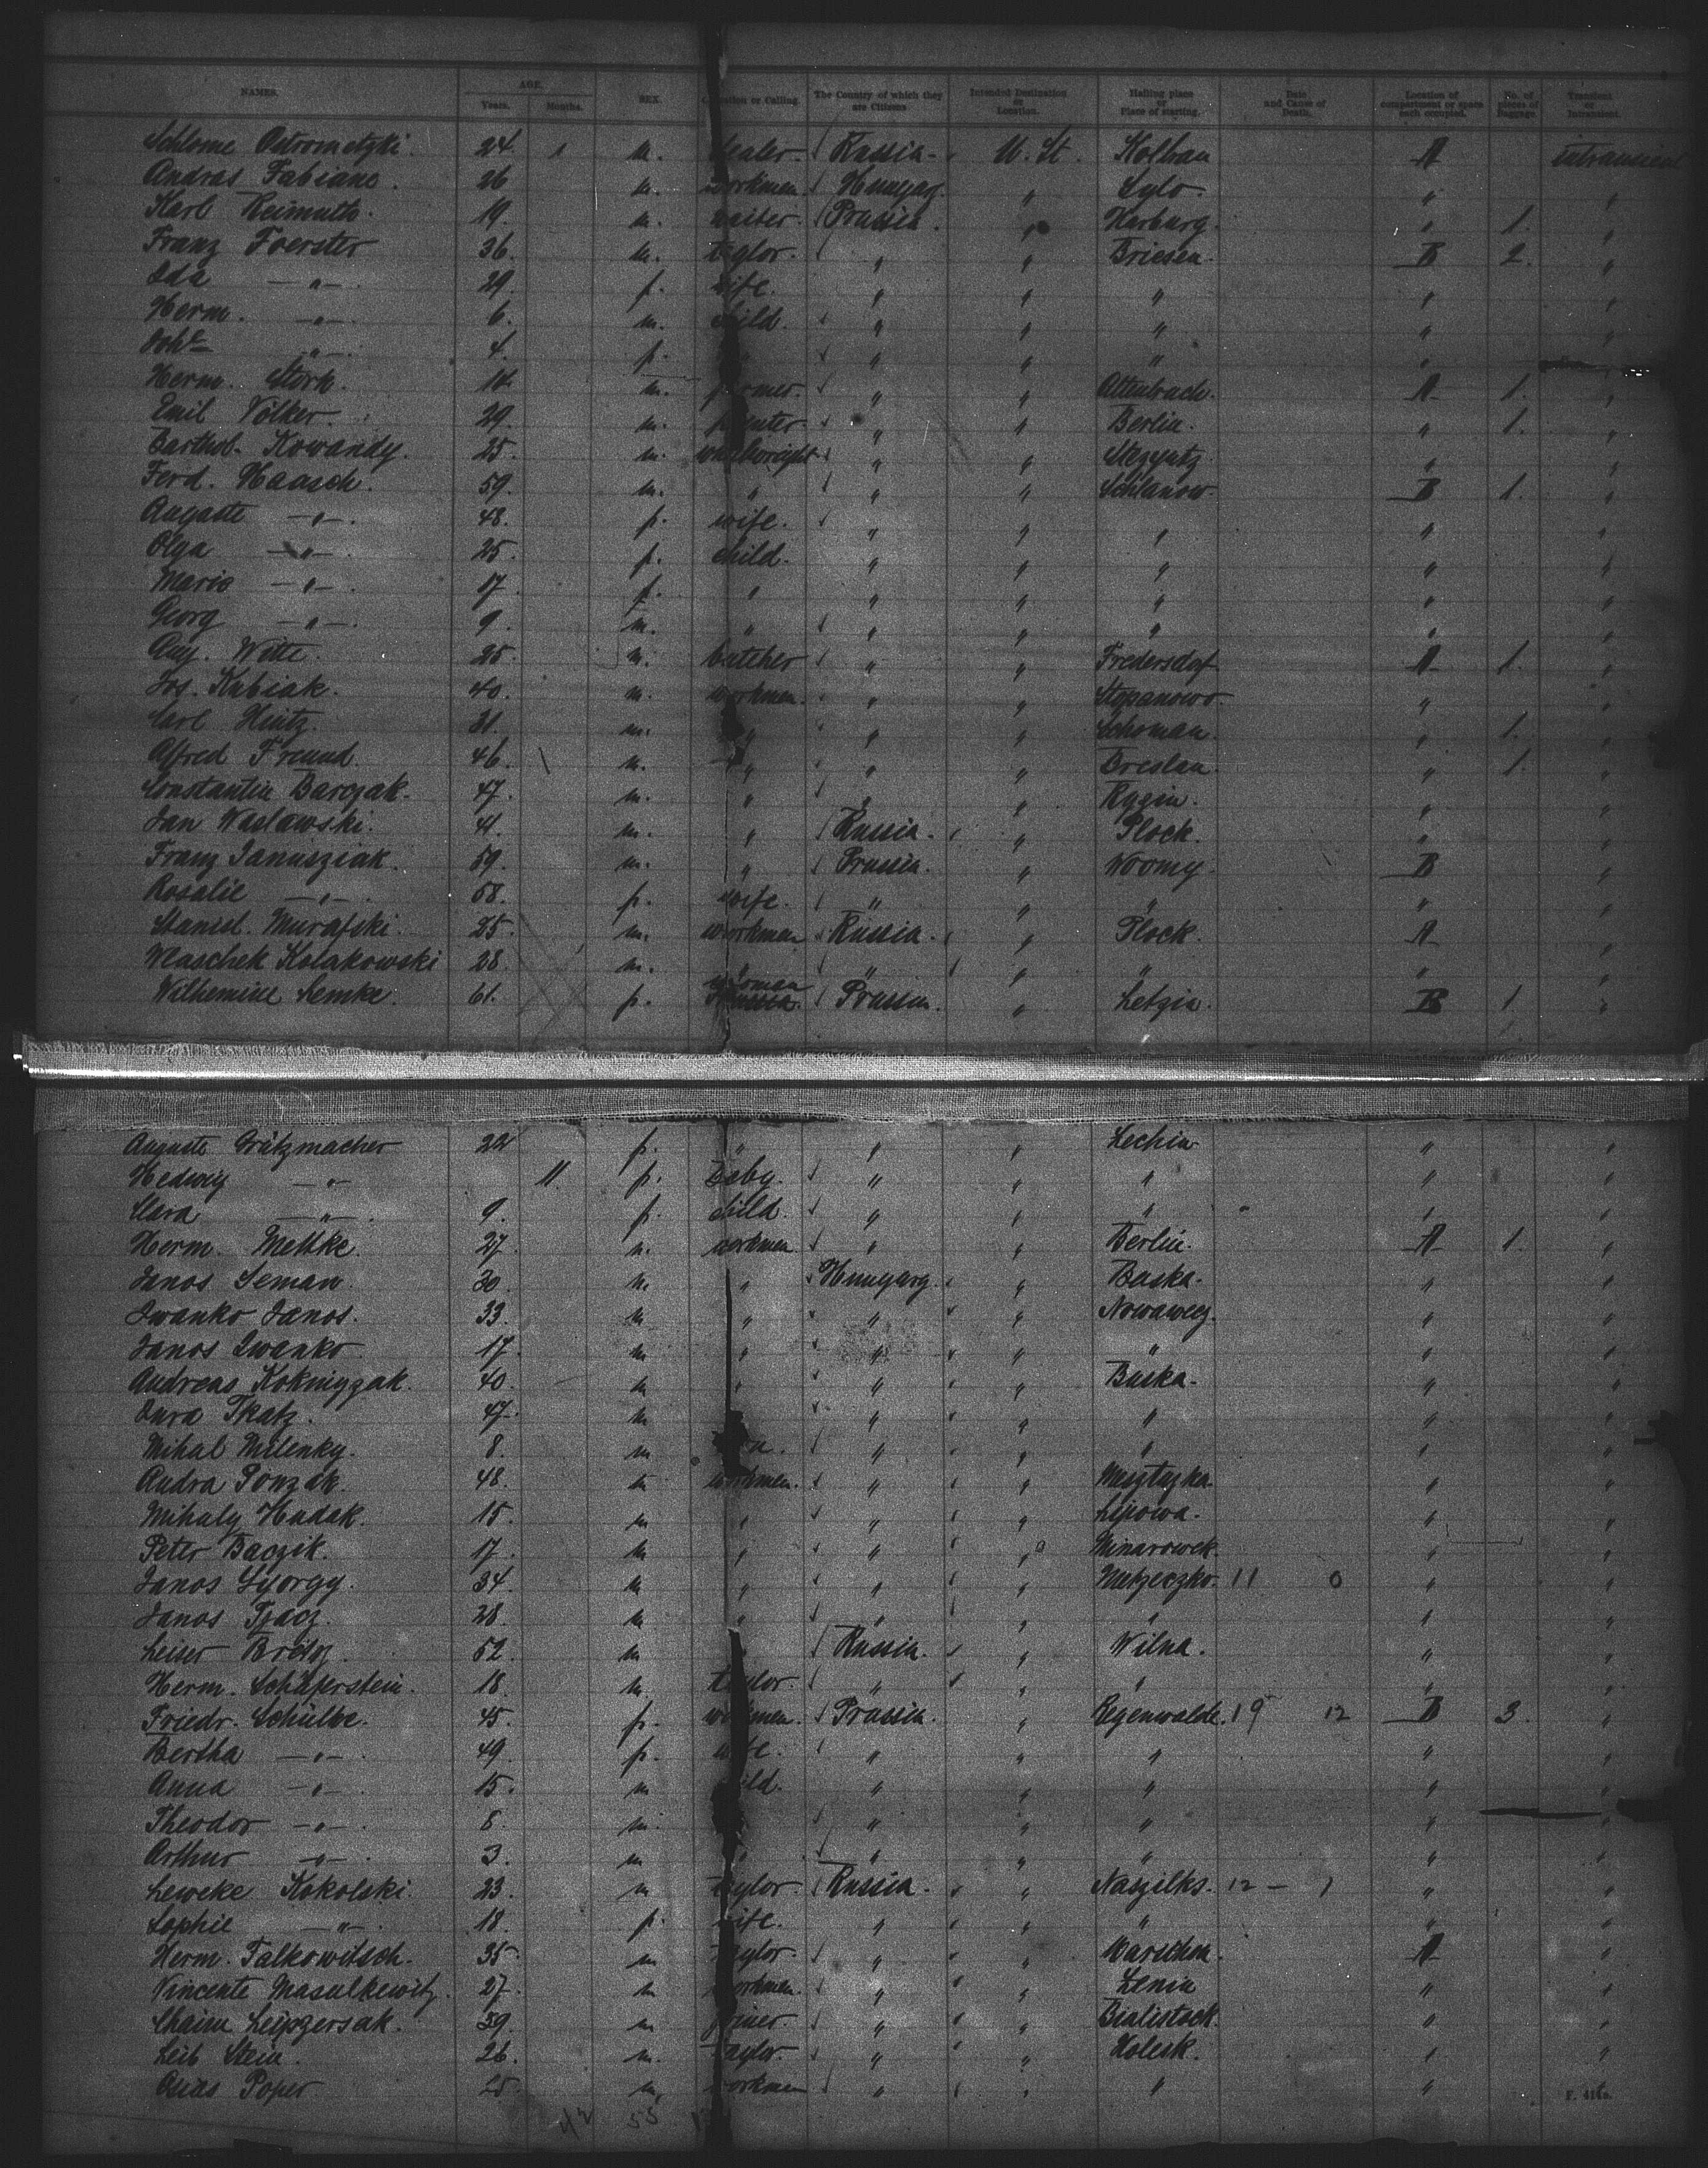 NAMES. AGE. Years. Months. SEX. or Calling. The Country of which they are Citizens Intended Destination or Location. Hailing place or Place of starting. Date and Cause of Death. Location of compartment or space each occupied. No. of pieces of Baggage. Transient or Intransient.
Schlome 24. m. Russia - U. St. A
Andras Fabianc. 26 m. workmen Hungary. " " " "
Karl Reimuth. 19. m. Prussia. " Harburg. " 1. "
Franz Foerster 36. m. taylor. " " Briesen. B 2. "
Ida —"— 29. f. wife. " " " " "
Herm. —"— 6. m. child. " " " " "
—"— 4. f. " " " " "
Herm. Stork. m. farmer. " " Attenbach. A 1. "
Emil Völker. 29. m. " " Berlin. " 1. "
Barthol. Kowandy. 25. m. " " " "
Ferd. Haasch. 59. m. " " " Schlanow. B 1. "
Auguste —"— 48. f. wife. " " " " "
Olga —"— 25. f. child. " " " " "
Marie —"— 17. f. " " " " " "
Georg —"— 9. m. " " " " " "
Aug. Witte. 25. m. butcher " " Fredersdof A 1. "
Jos. Kubiak. 40. m. workmen. " " Stepanowo " "
Carl Hintz. 31. m. " " " Schoman. " 1. "
Alfred Freund. 46. m. " " " Breslau. " 1. "
Constantin Barczak. 47. m. " " " " "
Jan Waslawski. 41. m. " Russia. " Plock. " "
Franz Janusziak. 59. m. " Prussia. " Woomy. B "
Rosalie —"— 58. f. wife. " " " " "
Stanisl. Murafski. 25. m. workman Russia. " Plock. A "
Waschek Kolakowski 28. m. " " " " " "
Wilhemine Lemke. 61. f. woman Prussia. " Letzin. B 1 "
Auguste Grützmacher 22 f. " " " Lechin " "
Hedwig —"— 11. f. Baby. " " " " "
Clara —"— 9. f. child. " " " " "
Herm. Mettke. 27. m. workmen " " Berlin. A 1. "
Janos Seman. 30. m. " Hungary. " Baska. " "
Iwanko Janos. 33. m " " " Nowawecz. " "
Janos Iwanko 17. m " " " " " "
Andreas 40. m " " " Baska. " "
Jura Tkatz. 47. m " " " " "
Mihal Milenky. 8. m " " " " "
Andra Ponzák. 48. m workmen. " " " "
Mihaly Hudak. 15. m " " " Lipowa. " "
Peter Baczik. 17. m " " " Minarowek. " "
Janos György. 34. m " " " Metzeczko. 11 0 " "
Janos 28. m " " " " " "
Leiser 52. m Russia. " Wilna. " "
Herm. Schäferstein. 18. m. taylor. " " " " "
Friedr. Schülbe. 45. f. workmen. Prussia. " Regenwalde. 19 12 B 3. "
Bertha —"— 49. f. wife. " " " " "
Anna —"— 15. m child. " " " " "
Theodor —"— 8. m. " " " " "
Arthur —"— 3. m " " " " " "
Leweke Kokolski. 23. m taylor. Russia. " Naszilks. 12 — 1 " "
Sophie —"— 18. f. wife. " " " " "
Herm. Falkowitsch. 35. m taylor. " " A "
Vincente Masulkewitz. 27. m workmen. " " Lenin " "
Chaim Leipzersak. 39. m joiner. " " Bialistock. " "
Leib Stein. 26. m. taylor. " " Kolesk. " "
Osias Poper 25. m. workmen " " " "
42 55